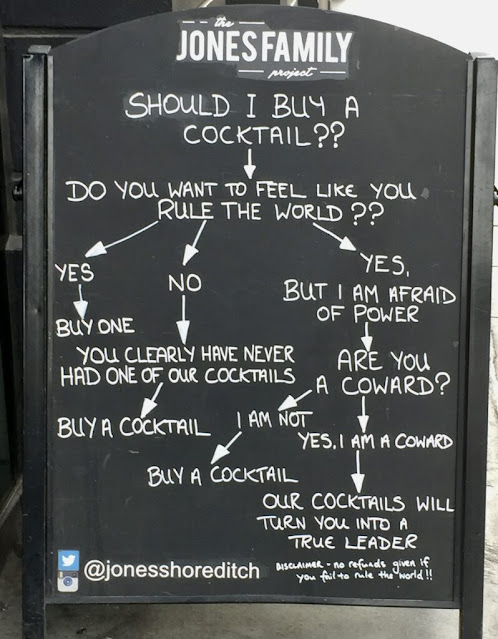 the
JONES FAMILY
project
SHOULD I BUY A
COCKTAIL??
DO YOU WANT TO FEEL LIKE YOU
RULE THE WORLD??
YES
BUY ONE
NO
YOU CLEARLY HAVE NEVER
HAD ONE OF OUR COCKTAILS
BUY A COCKTAIL
YES,
BUT I AM AFRAID
OF POWER
ARE YOU
A COWARD?
I AM NOT
BUY A COCKTAIL
YES, I AM A COWARD
OUR COCKTAILS WILL
TURN YOU INTO A
TRUE LEADER
DISCLAIMER - no refunds given if
you fail to rule the world!!
@jonesshoreditch